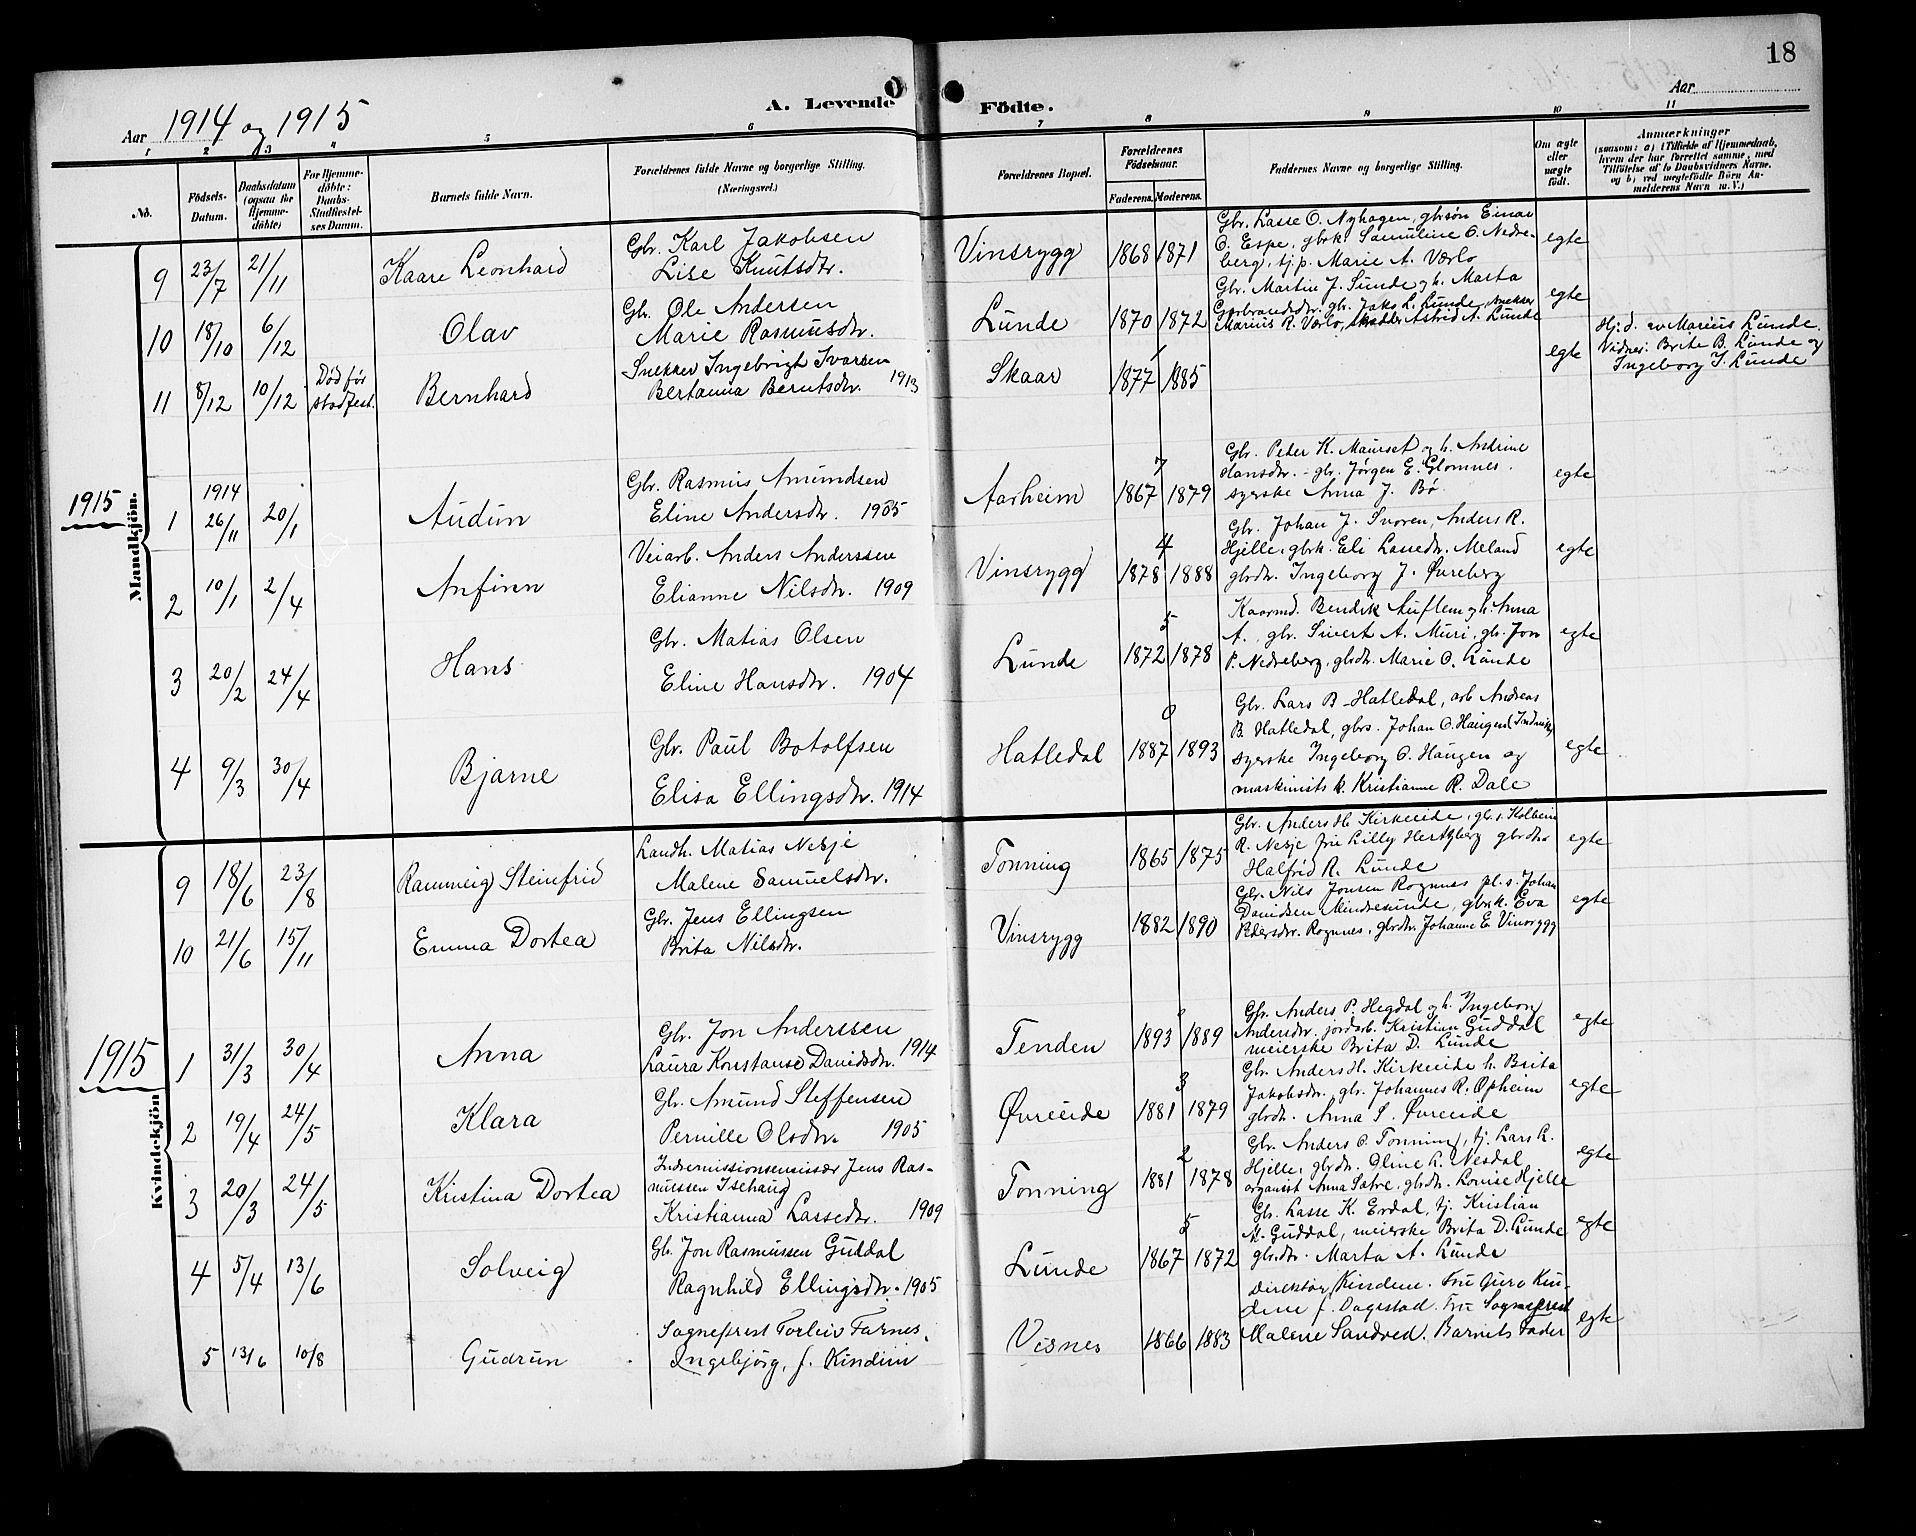 18
Aar 1914 og 1915
A. Levende Födte.
Aar
1 2 3 4 5 6 7 8 9 10 11
No.
Födsels-
Datum.
Daabsdatum
(ogsaa for
Hjemme-
döbte)
For Hjemme-
döbte:
Daabs-
Stadfæstel-
ses Datum.
Barnets fulde Navn.
Forældrenes fulde Navne og borgerlige Stilling.
(Næringsvei.)
Forældrenes Bopæl.
Forældrenes
Födselsaar.
Faderens. Moderens.
Faddernes Navne og borgerlige Stilling.
Om ægte
eller
uægte
födt.
Anmærkninger
(saasom: a) i Tilfælde af Hjemmedaab,
hvem der har forrettet samme, med
Tilföielse af to Daabsvidners Navne,
og b) ved uægtefödte Börn An-
melderens Navn m. V.)
Mandkjön.
9 23/7 21/11 Kaare Leonhard
Gbr. Karl Jakobsen
Lise Knutsdtr.
Vinsrygg 1868 1871
Gbr. Lasse O. Nyhagen, gbrsön Einar
O. Espe, gbrk. Samuline O. Nedre-
berg, tj.p. Marie A. Værlo
egte
10 18/10 6/12 Olav
Gbr. Ole Andersen
Marie Rasmusdtr.
Lunde 1870 1872
Gbr. Martin J. Sunde og h. Marta
gbr. Jako L. Lunde, snekker
Marius R. Værlo, Astrid A. Lunde
egte
11 8/12 10/12 Död før
stadfest.
Bernhard
Snekker Ingebrigt Ivarsen
Bertanna Berntsdtr. 1913
Skaar 1 1877 1885
egte
Hj.d. av Marius Lunde.
Vidner: Brite B. Lunde og
Ingeborg J. Lunde
1915
1 1914 26/11 20/1 Audun
Gbr. Rasmus Amundsen
Eline Andersdtr. 1905
Aarheim 7 1867 1879
Gbr. Peter K. Maurset og h. Andrine
Hansdtr. - gbr. Jørgen E. Glomnes.
syerske Anna J. Bø
egte
2 10/1 2/4 Anfinn
Veiarb. Anders Anderssen
Elianne Nilsdtr. 1909
Vinsrygg 4 1878 1888
Gbr. Johan J. Svoren, Anders R.
Hjelle, gbrk. Eli Lassedtr. Meland
gbrdtr. Ingeborg J. Øvreberg
egte
3 20/2 24/4 Hans
Gbr. Matias Olsen
Eline Hansdtr. 1904
Lunde 5 1872 1878
Kaarmd. Bendik Auflem og h. Anna
A., gbr. Sivert A. Muri, gbr. Jon
P. Nedreberg, gbrdtr. Marie O. Lunde
egte
4 9/3 30/4 Bjarne
Gbr. Paul Botolfsen
Elisa Ellingsdtr. 1914
Hatledal 0 1887 1893
Gbr. Lars B. Hatledal, arb. Andreas
B. Hatledal, gbrs. Johan O. Haugen
syerske Ingeborg O. Haugen og
maskinists k. Kristianne R. Dale
egte
Kvindekjön
9 18/6 23/8 Ranveig Steinfrid
Landh. Matias Nesje
Malene Samuelsdtr.
Tonning 1865 1875
Gbr. Anders H. Kirkeide, gbr.s. Kolbein
R. Nesje Fru Lilly Hertzberg gbrdtr.
Halfrid R. Lunde
egte
10 21/6 15/11 Emma Dortea
Gbr. Jens Ellingsen
Brita Nilsdtr.
Vinsrygg 1882 1890
Gbr. Nils Jonsen Rognnes pl.s. Johan
Davidsen Mindresunde, gbrk. Eva
Pedersdtr. Rognnes, gbrdtr. Johanne E. Vinsrygg
egte
1915
1 31/3 30/4 Anna
Gbr. Jon Anderssen
Laura Konstanse Davidsdtr. 1914
Tenden 1893 1889
Gbr. Anders P. Hegdal og h. Ingeborg
Andersdtr. jordarb. Kristian Guddal
meierske Brita D. Lunde
egte
2 19/4 24/5 Klara
Gbr. Amund Steffensen
Pernille Olsdtr. 1905
Øvreeide 3 1881 1879
Gbr. Anders H. Kirkeeide h. Brita
Jakobsdtr., gbr. Johannes R. Opheim
gbrdtr. Anna S. Øvreeide
egte
3 20/3 24/5 Kristina Dortea
Indremissionsemissær Jens Ras-
mussen Isehaug
Kristianna Lassedtr. 1909
Tonning 2 1881 1878
Gbr. Anders O. Tonning, tj. Lars R.
Hjelle, gbrdtr. Oline L. Nesdal
organist Anna Sætre, gbrdtr. Louise Hjelle
egte
4 5/4 13/6 Solveig
Gbr. Jon Rasmussen Guddal
Ragnhild Ellingsdtr. 1905
Lunde 5 1867 1872
Gbr. Lasse K. Erdal, tj. Kristian
M. Guddal, meierske Brita D. Lunde
gbrdtr. Marta A. Lunde
egte
5 13/6 10/8 Gudrun
Sogneprest Torleiv Farnes.
Ingebjörg, f. Kindem
Visnes 1866 1883
Direktör Kindem. Fru Guro Kin-
dem f. Dagestad. Fru Sogneprest
Malene Sandved. Barnets Fader
egte